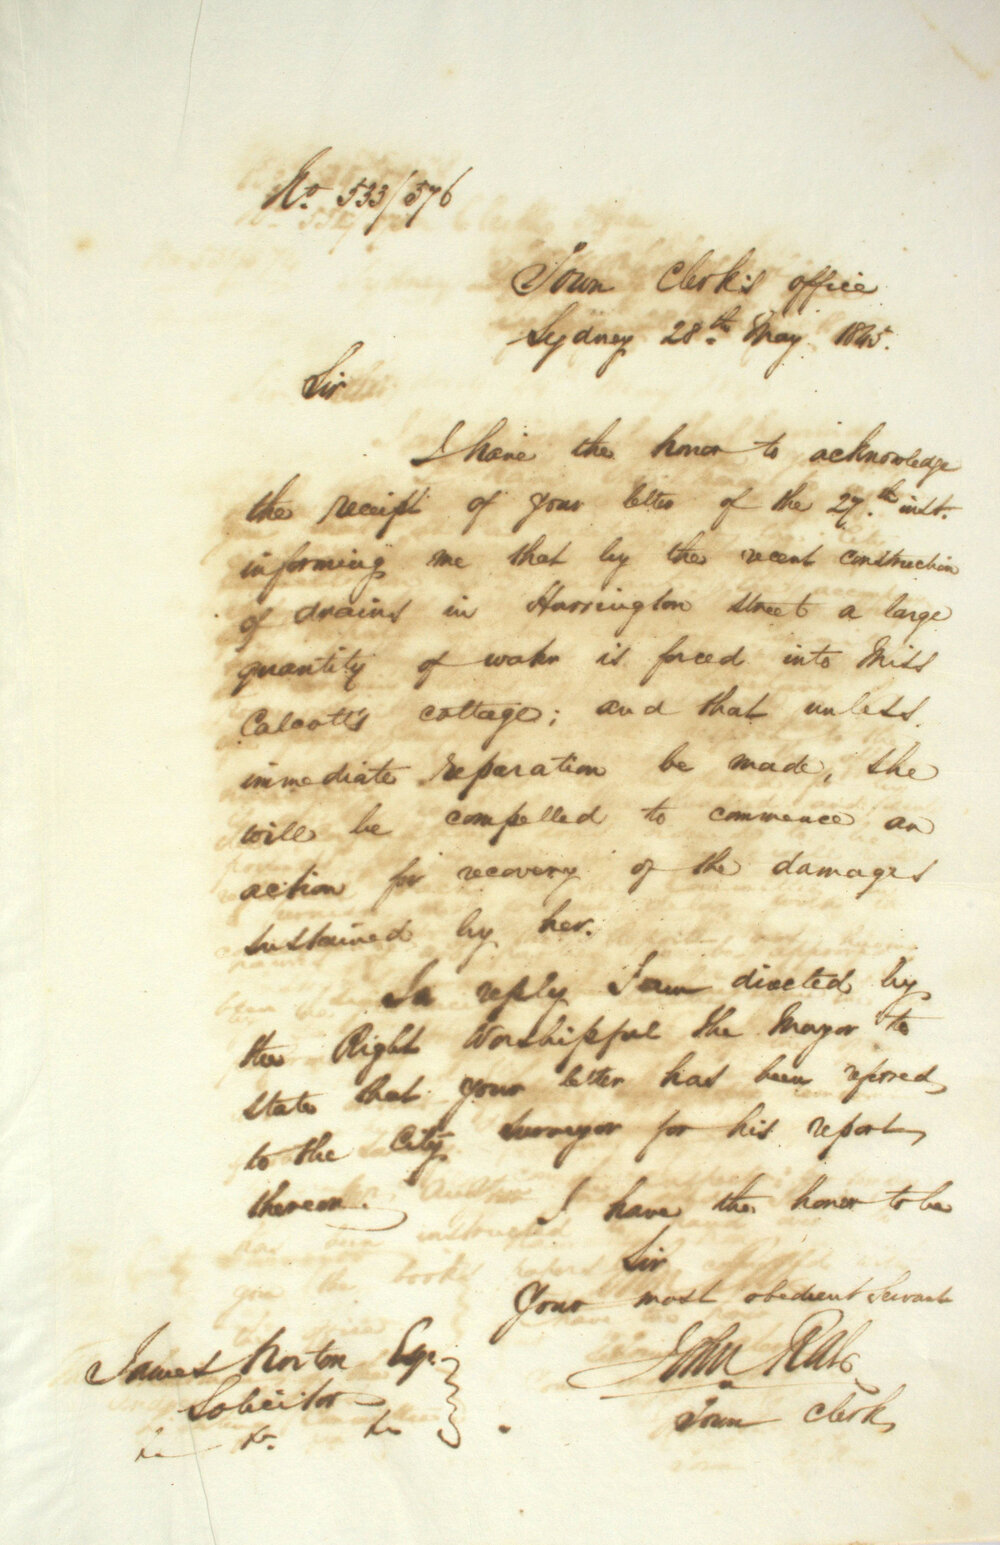 No. 533/576
Town Clerk's office
Sydney 28th May 1845.
Sir
I have the honor to acknowledge
the receipt of your letter of the 27th inst.
informing me that by the recent construction
of drains in Harrington street a large
quantity of water is forced into Miss
Calcott's cottage; and that unless
immediate reparation be made, she
will be compelled to commence an
action for recovery of the damages
sustained by her.
In reply I am directed by
the Right Worshipful the Mayor to
state that your letter has been referred
to the City Surveyor for his report
thereon.
I have the honor to be
Sir
Your most obedient Servant
John Rae
Town Clerk
James Norton Esqr.
Solicitor